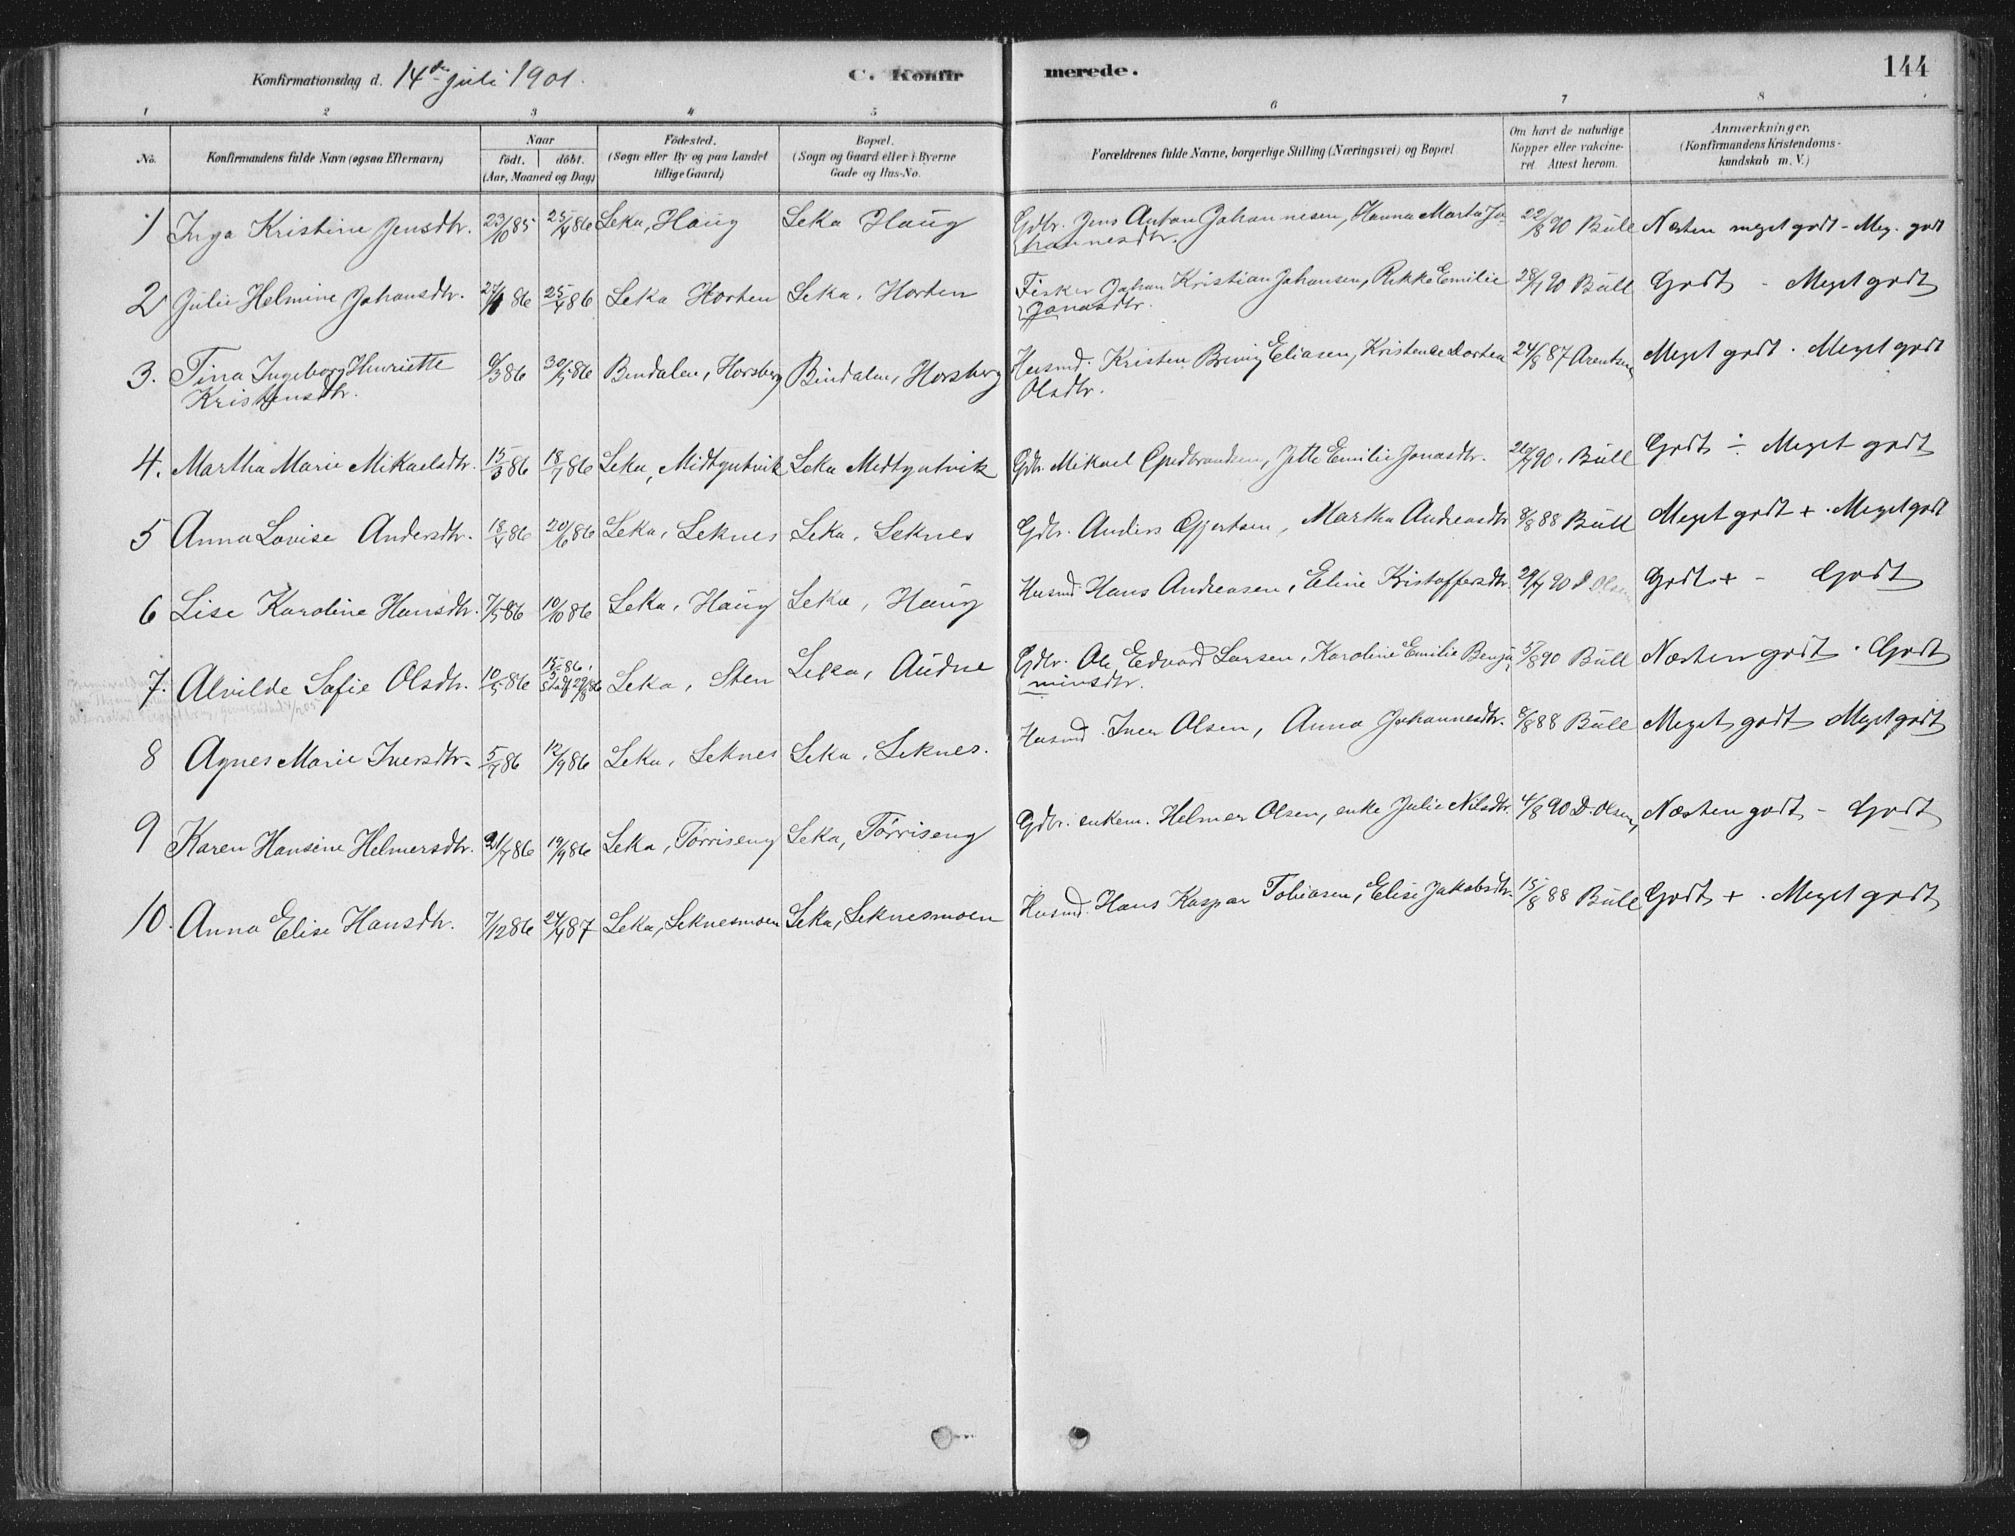 Konfirmationsdag d. 14de juli 1901.
C. Konfir merede.
144
1 2 3 4 5 6 7 8
No.
Konfirmandens fulde Navn (ogsaa Efternavn)
Naar
födt. | döbt.
(Aar, Maaned og Dag)
Födested.
(Sogn eller By og paa Landet
tillige Gaard)
Bopæl.
(Sogn og Gaard eller i Byerne
Gade og Hus-No.
Forældrenes fulde Navne, borgerlige Stilling (Næringsvei) og Bopæl
Om havt de naturlige
Kopper eller vakcine-
ret. Attest herom.
Anmærkninger.
(Konfirmandens Kristendoms-
kundskab m. V.)
1 Inga Kristine Jensdtr. 23/10 85 25/4 86 Leka, Haug Leka Haug Gdbr. Jens Anton Johannesen, Hanna Marta Jo- 22/8 90 Bull Næsten meget godt - Meg. godt
hannesdtr.
2 Julie Helmine Johansdtr. 86 25/4 86 Leka Horten Leka, Horten Fisker Johan Kristian Johansen, Rikke Emilie 28/7 90 Bull Godt - Meget godt
Jonasdtr.
3. Tina Ingeborg Henriette 9/3 86 30/5 86 Bindalen, Horsberg Bindalen, Horsberg Husmd. Kristen Bring Eliasen, Kristense Dortea 24/8 87 Arentsen Meget godt. Meget godt
Kristensdtr. Olsdtr.
4. Martha Marie Mikaelsdtr. 15/3 86 18/7 86 Leka, Midtgutvik Leka Midtgutvik Gdbr. Mikael Gudbrandsen, Jette Emilie Jonasdtr. 26/7 90. Bull Godt ÷ Meget godt
5 Anna Lovise Andersdtr. 18/4 86 20/6 86 Leka, Leknes Leka, Leknes Gdbr. Anders Gjertsen, Martha Andreasdtr 8/8 88 Bull Meget godt + . Meget godt
6 Lise Karoline Hansdtr. 7/5 86 10/10 86 Leka, Haug Leka, Haug Husmd. Hans Andreasen, Eline Kristoffersdtr. 29/7 90 D Olsen Godt + - Godt
7. Alvilde Sofie Olsdtr. 10/5 86 Leka, Sten Leka, Audne Gdbr. Ole Edvard Larsen, Karoline Emilie Benja- 5/8 90 Bull Næsten godt . Godt
minsdtr.
8 Agnes Marie Iversdtr. 5/7 86 12/9 86 Leka, Leknes Leka, Leknes. Husmd. Iver Olsen, Anna Johannesdtr. 8/8 88 Bull Meget godt Meget godt
9 Karen Hansine Helmersdtr. 21/7 86 19/9 86 Leka, Törriseng Leka, Törriseng Gdbr. enkem. Helmer Olsen, enke Julie Nilsdtr. 4/8 90 D. Olsen, Næsten godt - Godt
10. Anna Elise Hansdtr. 7/12 86 24/4 87 Leka, Leknesmoen Leka, Leknesmoen Husmd. Hans Kaspar Tobiasen, Elise Jakobsdtr. 15/8 88 Bull Godt + . Meget godt